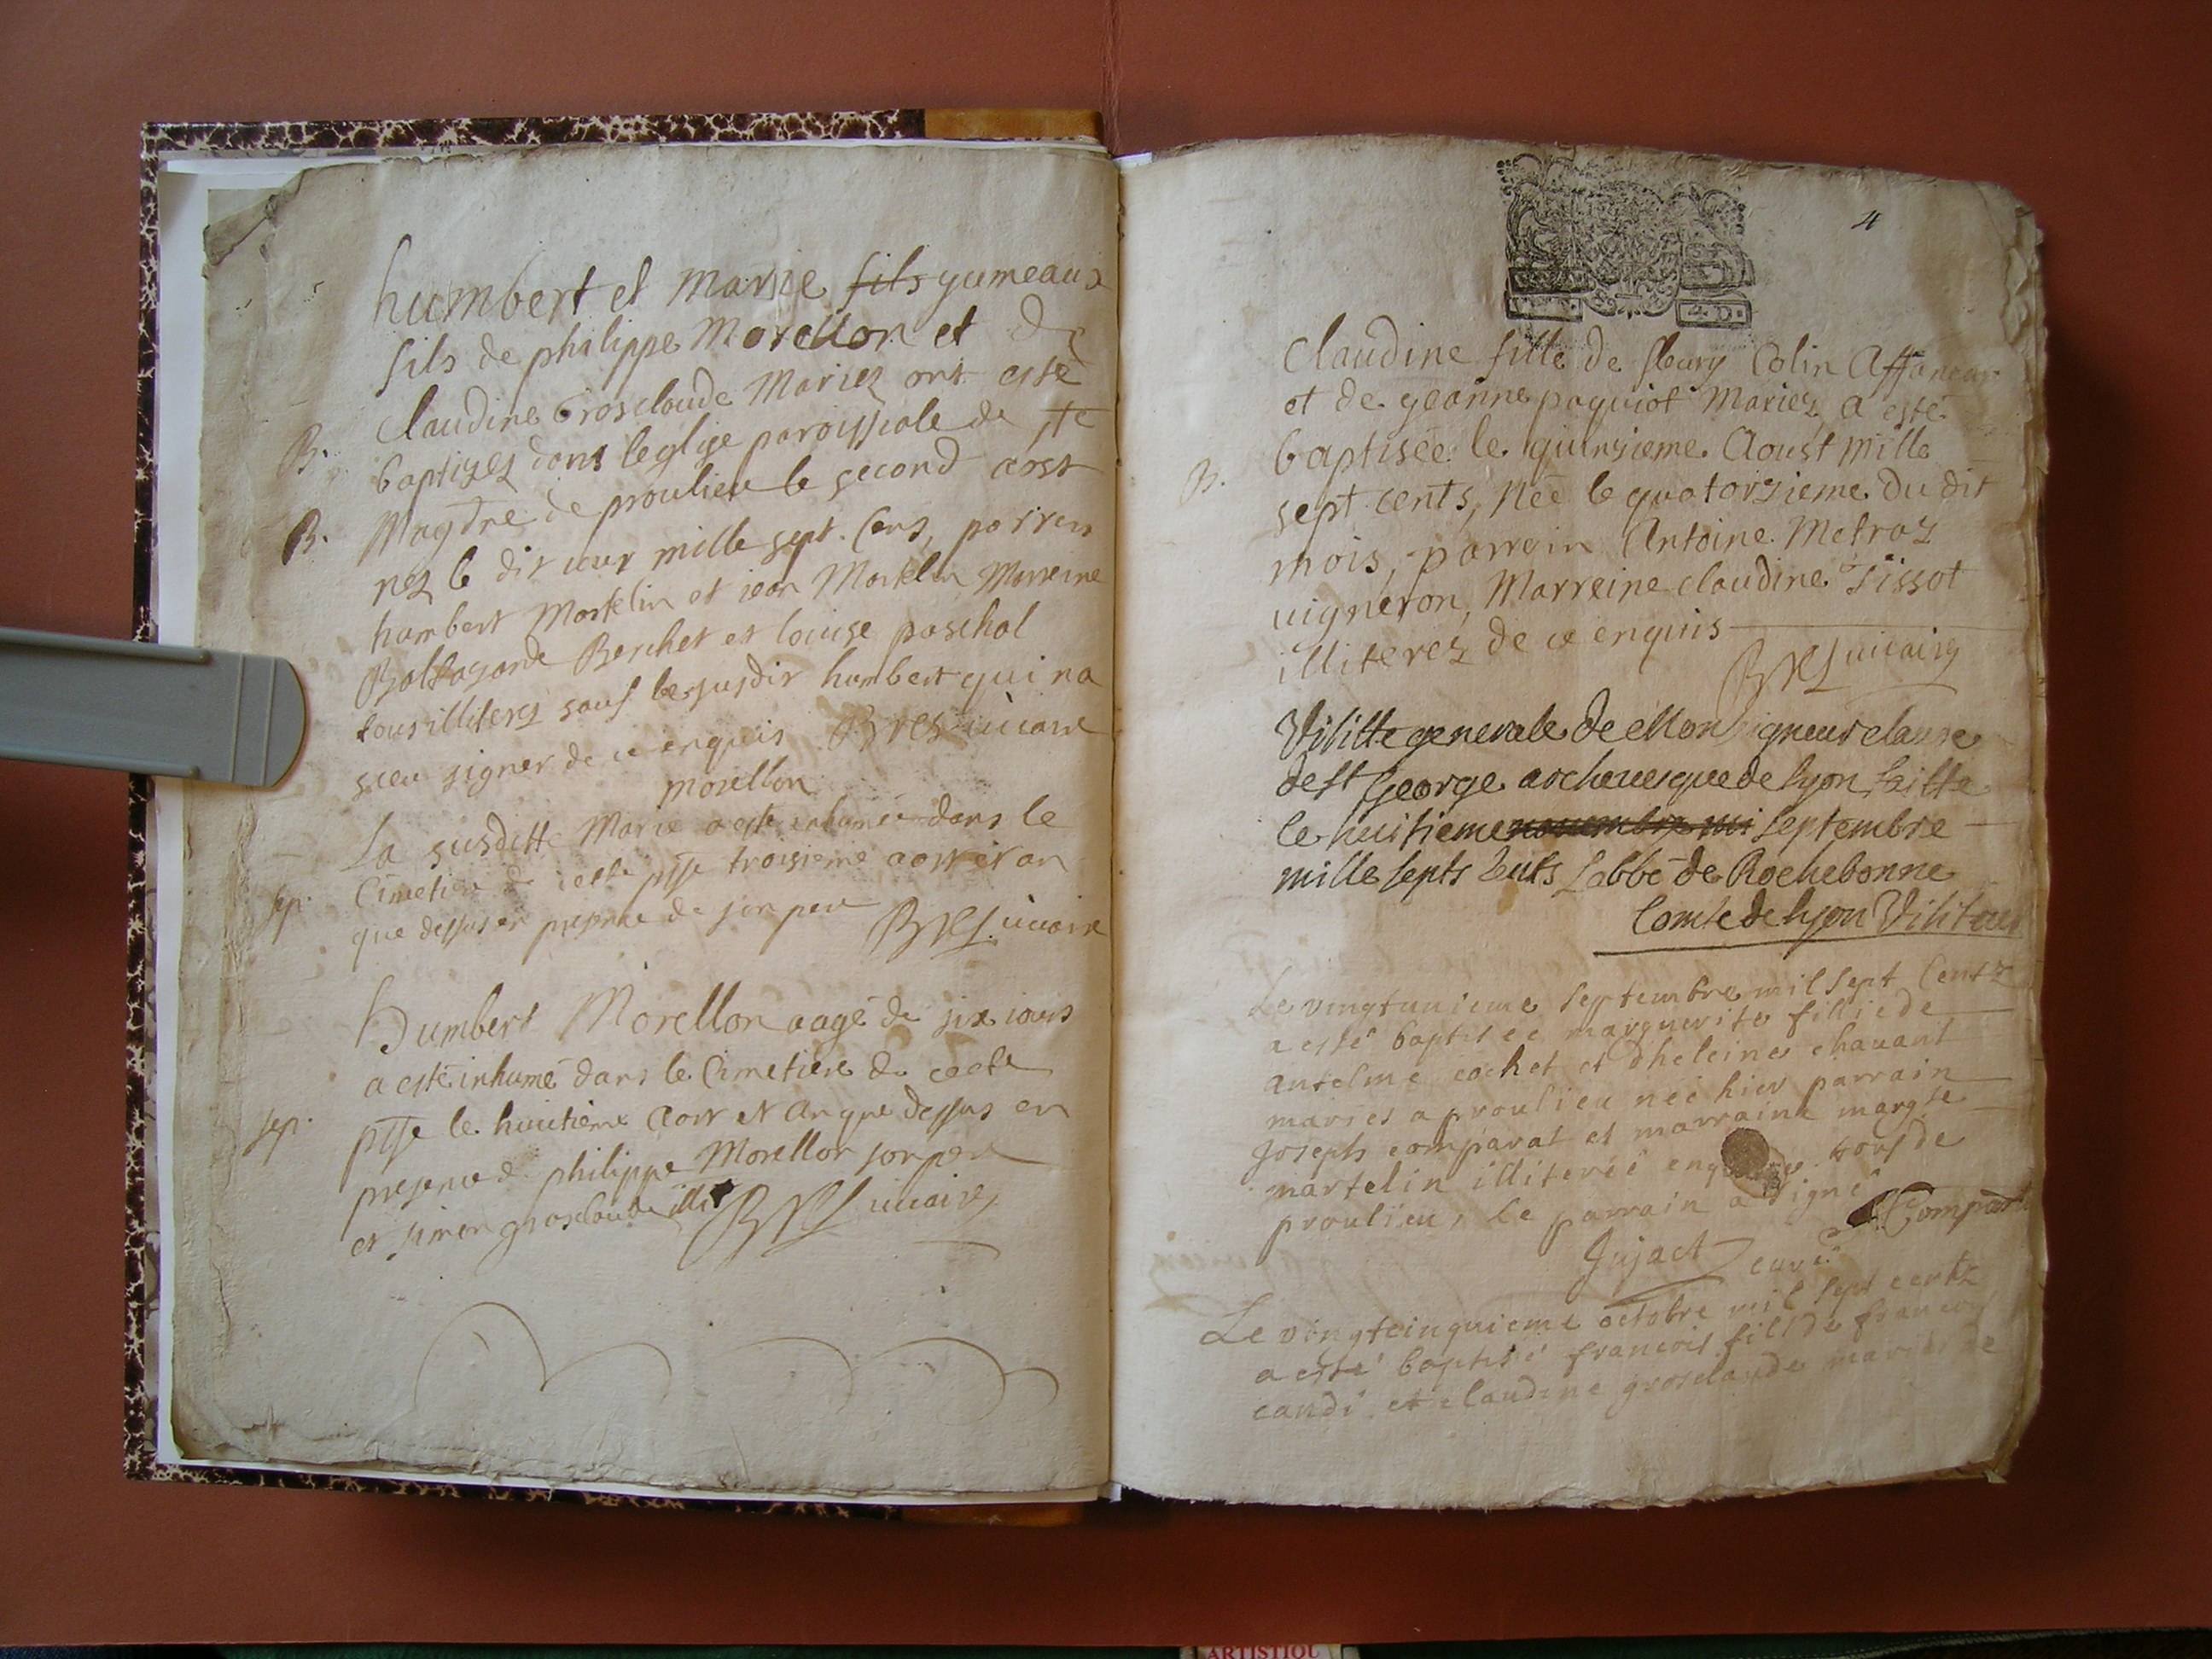 humbert et Marie fils gumeaux
fils de philippe Morellon et de
Claudine Grosclaude Mariez ont esté
B. baptizez dans leglise paroissiale de ste
B. Magdne de proulieu le second aost
nez le dit iour mille sept. Cens, parrein
humbert Martelin et iean Martelin Marreine
Baltazarde Berchet et louise paschal
tous illiterez sauf le susdit humbert qui na
sceu signer de ce enquis Bres uicaire
morellon
La susditte Marie a esté inhumée dans le
sep. Cimetiere de cette psse troisieme aost et an
que dessus en presence de son pere Bres uicaire
Humbert Morellon aagé de six iours
a esté inhumé dans le Cimetiere de cette
sep. psse le huitième Aost et An que dessus en
presence de philippe Morellon son pere
et simon grosclaude illit Bres uicaire
4
Claudine fille de fleury Colin Affaneur
et de geanne paquiot Mariez, a esté
B. baptisée le quinsieme Aoust mille
sept cents, née le quatorzieme du dit
mois, parrein Antoine Metraz
uigneron, Marreine claudine Tissot
illiterez de ce enquis
Bres uicaire
Visitte generale de Monseigneur claude
de st George archeuesque de lyon faitte
le huitieme nouembre mi septembre
mille septs cents Labbé de Rochebonne
Comte de lyon Visiteur
Le vingtunieme septembre mil sept Centz
a esté baptisée marguerite fillie de
antelme cochet et dheleine chauant
mariés a proulieu née hier parrain
Joseph comparat et marraine margte
martelin illiterée tous de
proulieu, le parrain a signé
J Comparat
Jujact curé
Le vingtcinquieme octobre mil sept centz
a esté baptisé francois fils de francois
candi et claudine grosclaude mariés de
ARTISTIQU